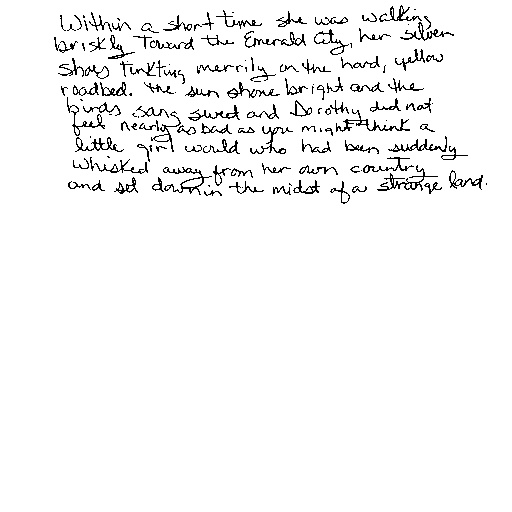 Within a short time she was walking
briskly toward the Emerald City, her silver
shoes tinkling merrily on the hard, yellow
roadbed. The sun shone bright and the
birds sang sweet and Dorothy did not
feel nearly as bad as you might think a
little girl would who had been suddenly
whisked away from her own country
and set down in the midst of a strange land.